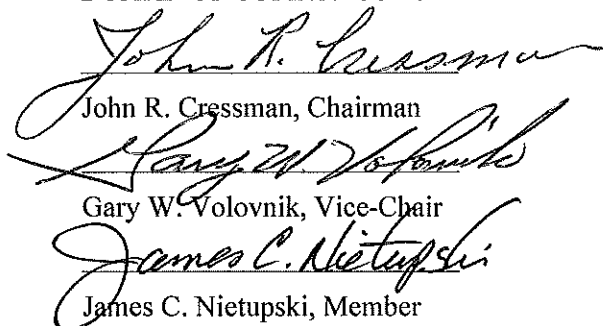 John R. Cressman
John R. Cressman, Chairman
Gary W. Volovnik
Gary W. Volovnik, Vice-Chair
James C. Nietupski
James C. Nietupski, Member